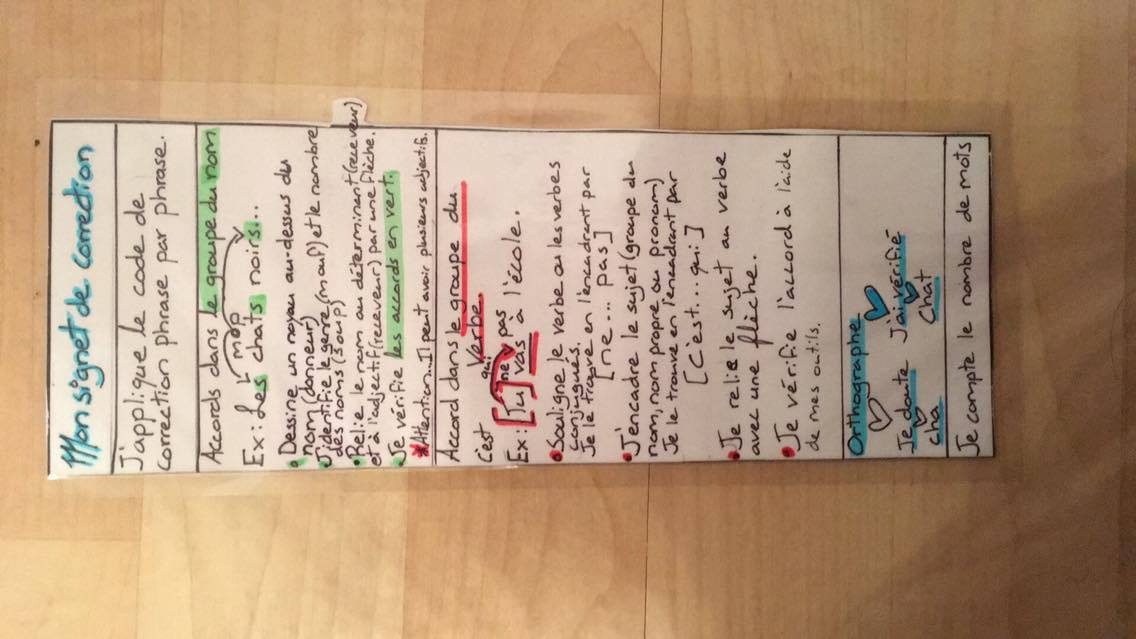 Mon signet de correction
J'applique le code de
correction phrase par phrase.
Accords dans le groupe du nom
mop
Ex: Les chats noirs...
Dessine un noyau au-dessus du
nom (donneur)
J'identifie le genre (m ou f) et le nombre
des noms (s ou p)
Relie le nom au déterminant (receveur)
et à l'adjectif (receveur) par une flèche.
Je vérifie les accords en vert.
Attention... Il peut avoir plusieurs adjectifs.
Accord dans le groupe du
verbe.
c'est qui
ne pas
Ex: [Tu] vas à l'école.
Souligne le verbe ou les verbes
conjugués.
Je le trouve en l'encadrant par
[ne... pas]
J'encadre le sujet (groupe du
nom, nom propre ou pronom)
Je le trouve en l'encadrant par
[C'est... qui]
Je relie le sujet au verbe
avec une flèche.
Je vérifie l'accord à l'aide
de mes outils.
Orthographe
Je doute J'ai vérifié
cha chat
Je compte le nombre de mots